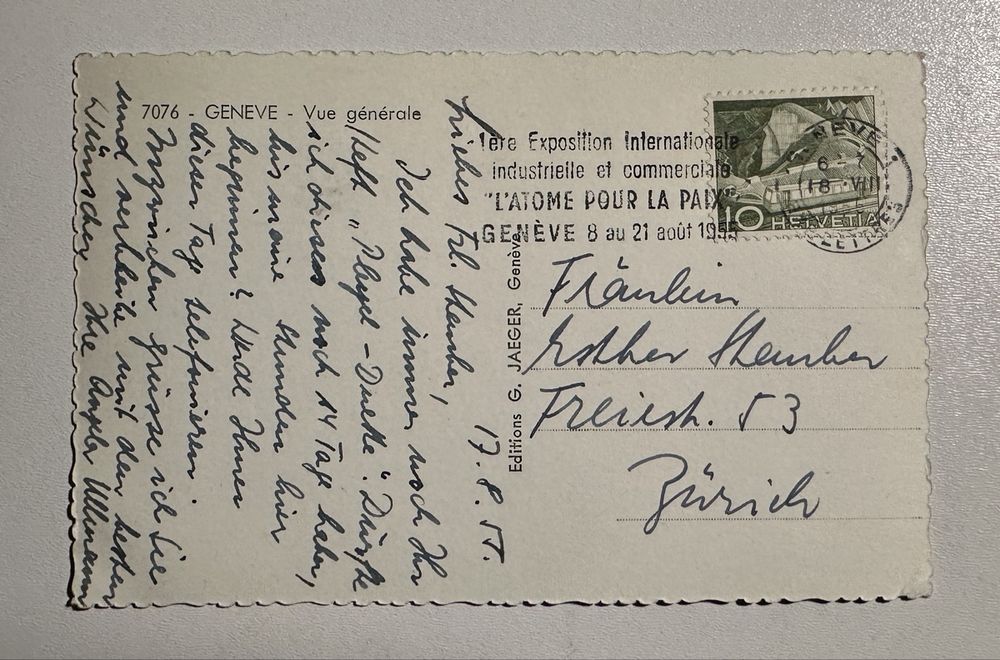 7076 - GENEVE - Vue générale
1ère Exposition Internationale
industrielle et commerciale
"L'ATOME POUR LA PAIX"
GENÈVE 8 au 21 août 1955
10 HELVETIA
Editions G. JAEGER, Genève
17.8.55.
Liebes Frl. Stamber,
Ich habe immer noch Ihr
Heft „Pleyel-Duette". Dürfte
ich dieses noch 14 Tage haben,
bis meine Stunden hier
beginnen? Werde Ihnen
dieser Tage telefonieren.
Inzwischen grüsse ich Sie
und verbleibe mit den besten
Wünschen Ihre Ullmann
Fräulein
Esther Stamber
Freiestr. 53
Zürich